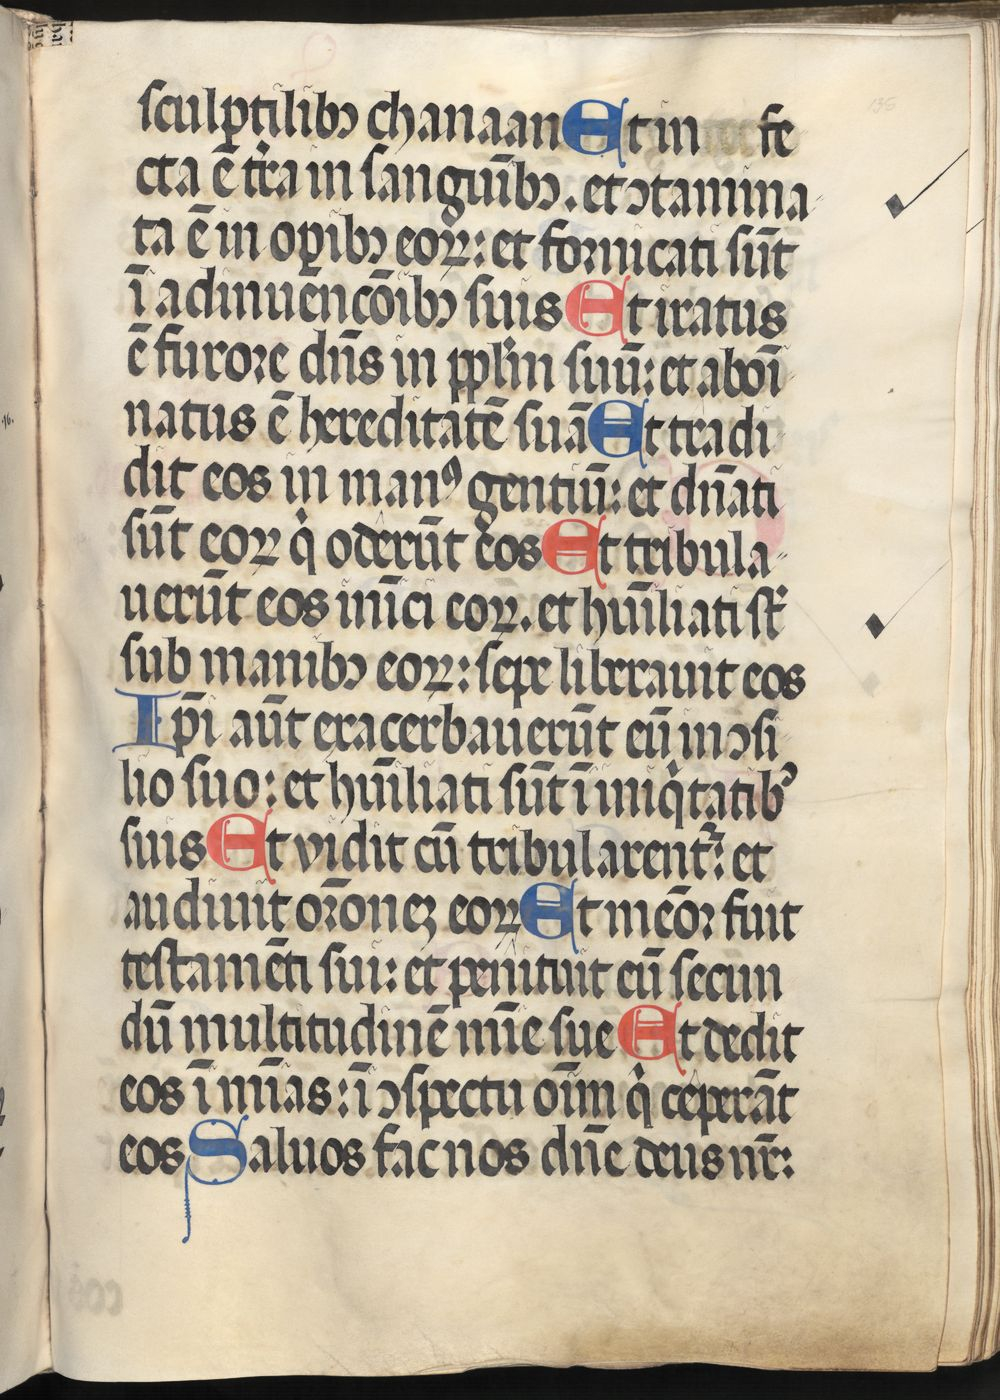 sculptilibꝫ chanaan Et in fe
cta ē tr̄a in sanguībꝫ. et ↄtamina
ta ē in oꝑibꝫ eoꝝ: et fornicati sūt
ī adinuencōībꝫ suis Et iratus
ē furore dn̄s in pplm̄ suū: et aboī
natus ē hereditatē suā Et tradi
dit eos in manꝰ gentiū: et dn̄ati
sūt eoꝝ qͥ oderūt eos Et tribula
uerūt eos inīci eoꝝ. et huīliati st̄
sub manibꝫ eoꝝ: sepe liberauit eos
Ip̄i aūt exacerbauerūt eū in ↄsi
lio suo: et huīliati sūt ī iniqͥtatibꝰ
suis Et vidit cū tribularentᷣ: et
audiuit or̄oneꝫ eoꝝ Et mēor fuit
testamēti sui: et penituit eū secun
dū multitudinē mīe sue Et dedit
eos ī mīas: ī ↄspectu oīm qͥ ceperāt
eos Saluos fac nos dn̄e deus nr̄:
135